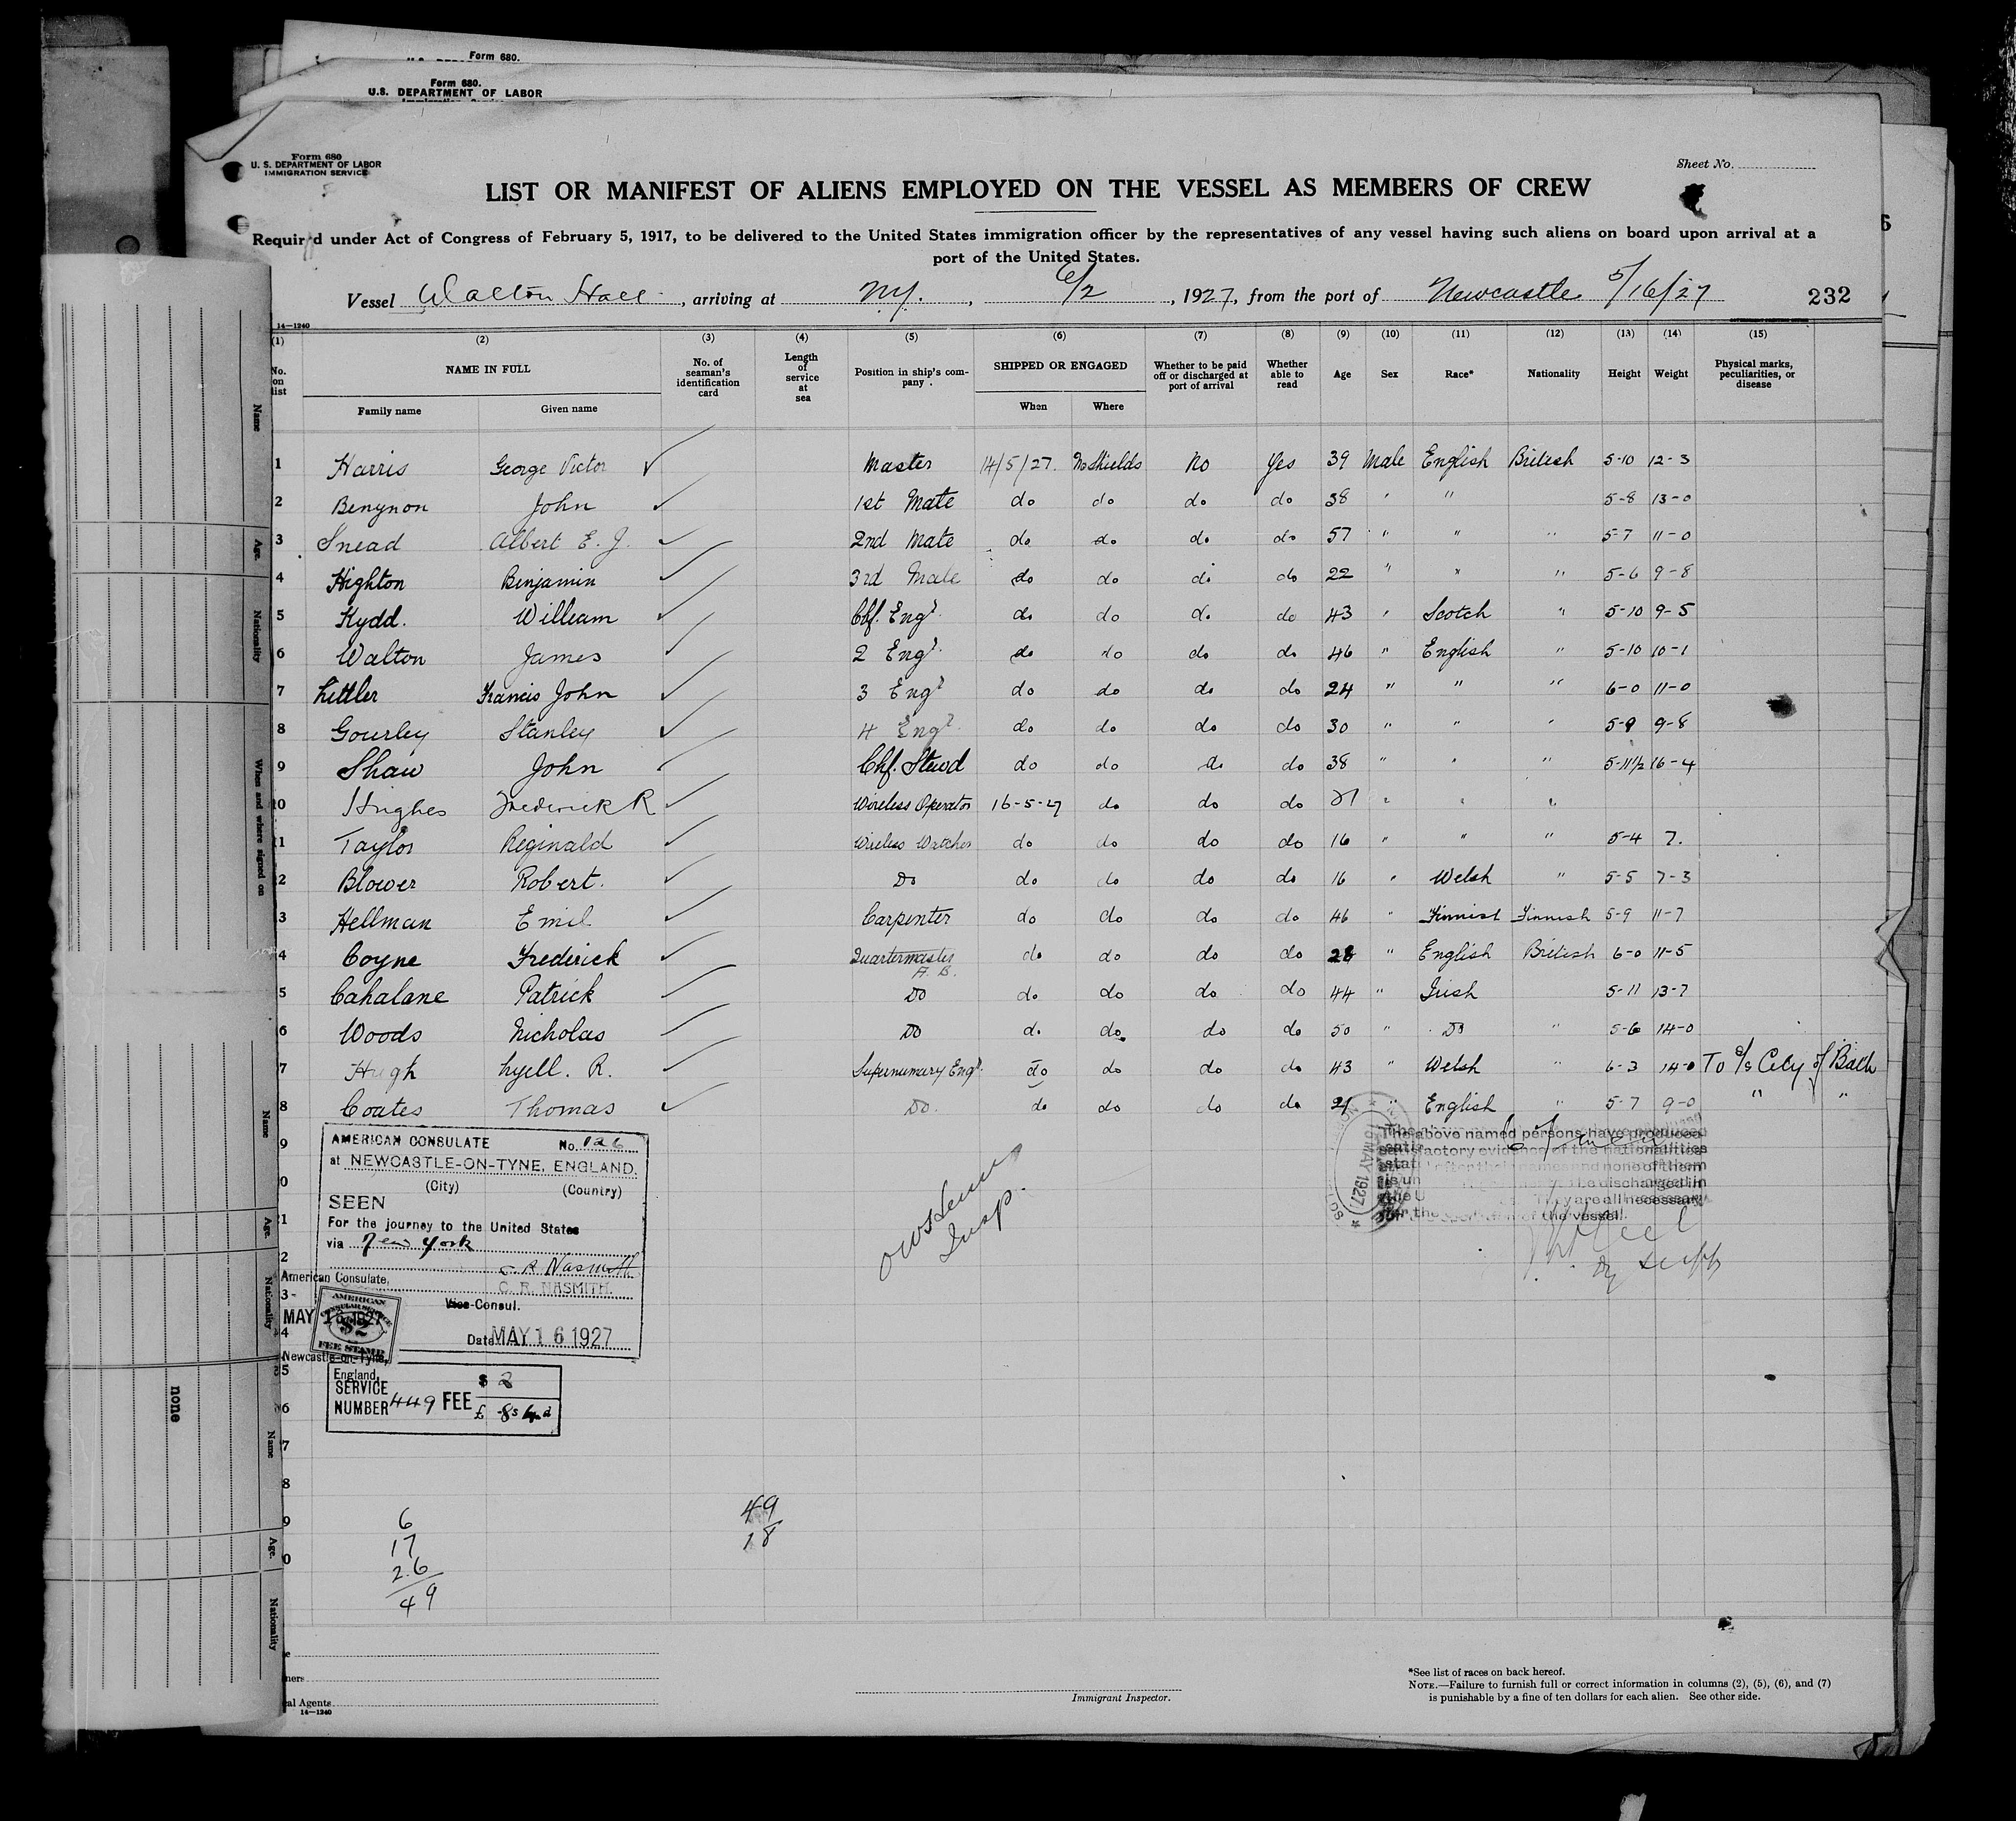 Form 680.
Form 680.
U.S. DEPARTMENT OF LABOR
Form 680
U. S. DEPARTMENT OF LABOR
IMMIGRATION SERVICE
Sheet No.
LIST OR MANIFEST OF ALIENS EMPLOYED ON THE VESSEL AS MEMBERS OF CREW
Required under Act of Congress of February 5, 1917, to be delivered to the United States immigration officer by the representatives of any vessel having such aliens on board upon arrival at a
port of the United States.
Vessel Walton Hall, arriving at N.Y., 6/2, 1927, from the port of Newcastle 5/16/27 232
14—1240
(1) (2) (3) (4) (5) (6) (7) (8) (9) (10) (11) (12) (13) (14) (15)
No. on list NAME IN FULL Family name Given name No. of seaman's identification card Length of service at sea Position in ship's company SHIPPED OR ENGAGED When Where Whether to be paid off or discharged at port of arrival Whether able to read Age Sex Race* Nationality Height Weight Physical marks, peculiarities, or disease
1 Harris George Victor ✓ Master 14/5/27. No Shields No Yes 39 Male English British 5-10 12-3
2 Benynon John ✓ 1st Mate do do do do 38 " " 5-8 13-0
3 Snead Albert E. J. ✓ 2nd Mate do do do do 57 " " " 5-7 11-0
4 Highton Benjamin ✓ 3rd Mate do do do do 22 " " " 5-6 9-8
5 Kydd. William ✓ Chf. Engr. do do do do 43 " Scotch " 5-10 9-5
6 Walton James ✓ 2 Engr. do do do do 46 " English " 5-10 10-1
7 Littler Francis John ✓ 3 Engr do do do do 24 " " " 6-0 11-0
8 Gourley Stanley ✓ 4 Engr. do do do do 30 " " " 5-9 9-8
9 Shaw John ✓ Chf. Stewd do do do do 38 " " " 5-11½ 16-4
10 Hughes Frederick R ✓ Wireless Operator 16-5-27 do do do 21 " " "
11 Taylor Reginald ✓ Wireless Watcher do do do do 16 " " " 5-4 7.
12 Blower Robert. ✓ Do do do do do 16 " Welsh " 5-5 7-3
13 Hellman Emil ✓ Carpenter do do do do 46 " Finnish Finnish 5-9 11-7
14 Coyne Frederick ✓ Quartermaster A.B. do do do do 28 " English British 6-0 11-5
15 Cahalane Patrick ✓ Do do do do do 44 " Irish 5-11 13-7
16 Woods Nicholas ✓ Do do do do do 50 " Do " 5-6 14-0
17 Hugh Lyell. R. ✓ Supernumary Engr. do do do do 43 " Welsh " 6-3 14-0 To S/S City of Bath
18 Coates Thomas ✓ Do. do do do do 21 " English " 5-7 9-0 " "
AMERICAN CONSULATE No. 126
at NEWCASTLE-ON-TYNE, ENGLAND.
(City) (Country)
SEEN
For the journey to the United States
via New York
C R Nasmith
C. R. NASMITH.
Vice-Consul.
Date MAY 16 1927
American Consulate,
MAY 16 1927
AMERICAN
CONSULAR SERVICE
$2
FEE STAMP
Newcastle-on-Tyne,
England,
SERVICE
NUMBER 449 FEE $ 2
£ -8s 4d
The above named persons have produced
satisfactory evidence of the nationalities
stated after their names and none of them
MAY 1927
They are all necessary
for the of the vessel.
Insp.
6
17
26
49
49
18
Immigrant Inspector.
*See list of races on back hereof.
NOTE.—Failure to furnish full or correct information in columns (2), (5), (6), and (7)
is punishable by a fine of ten dollars for each alien. See other side.
14—1240
Name
Age.
Nationality
When and where signed on
Name
Age.
Nationality
Name
Age.
Nationality
none